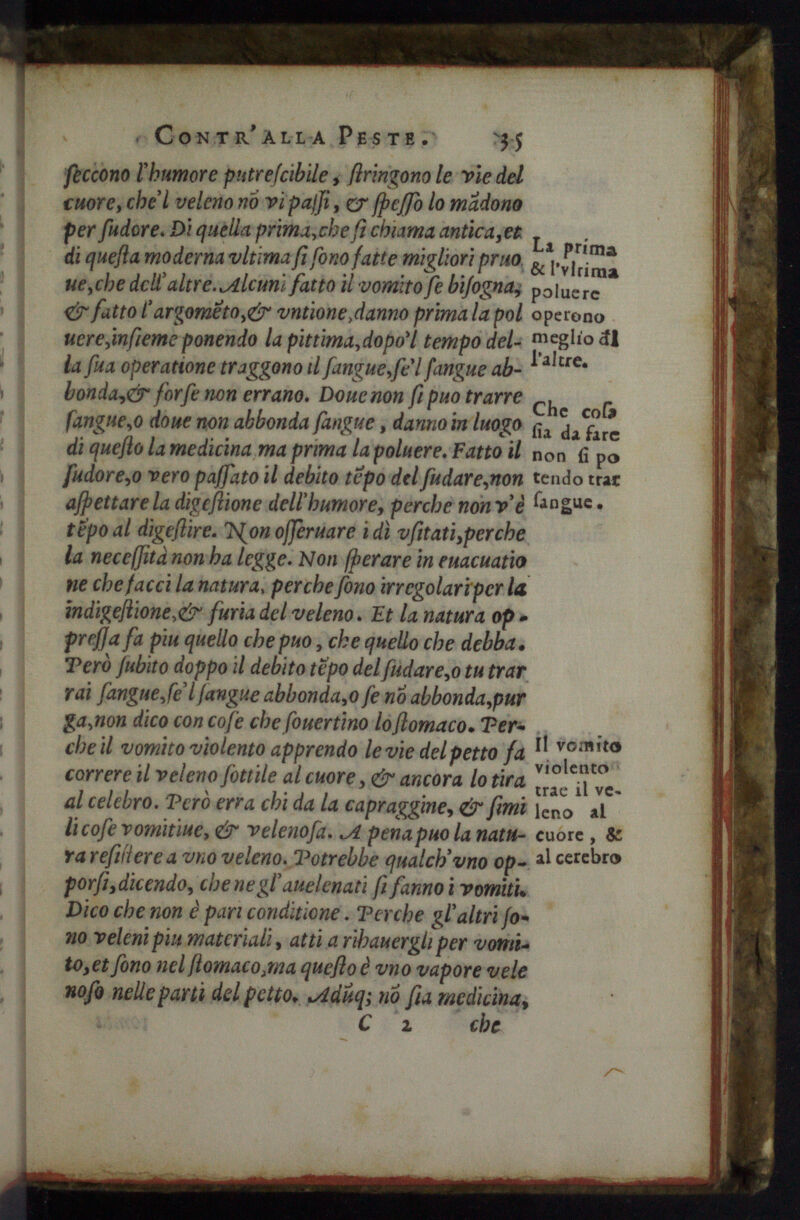 CONTR' ALLA PESTE. 35
ſeccono l'humore putreſcibile, ſtringono le vie del
cuore, che'l veleno nõ vi paſſi, & ſpeſſo lo mãdono
per ſudore. Di quella prima, che ſi chiama antica, et
di queſta moderna vltima ſi ſono fatte migliori pruo
ue, che dell'altre. Alcuni fatto il vomito ſe biſogna,
& fatto l'argomẽto, & vntione, danno prima la pol
uere, inſieme ponendo la pittima, dopo'l tempo del-
la ſua operatione traggono il ſangue, ſe'l ſangue ab-
bonda, & forſe non errano. Doue non ſi puo trarre
ſangue, o doue non abbonda ſangue, danno in luogo
di queſto la medicina ma prima la poluere. Fatto il
ſudore, o vero paſſato il debito tẽpo del ſudare, non
aſpettare la digeſtione dell'humore, perche non v'è
tẽpo al digeſtire. Non oſſeruare i dì vſitati, perche
la neceſſità non ha legge. Non ſperare in euacuatio
ne che facci la natura, perche ſono irregolari per la
indigeſtione, & furia del veleno. Et la natura op-
preſſa fa piu quello che puo, che quello che debba.
Però ſubito doppo il debito tẽpo del ſudare, o tu trar
rai ſangue, ſe'l ſangue abbonda, o ſe nõ abbonda, pur
ga, non dico con coſe che ſouertino lo ſtomaco. Per-
che il vomito violento apprendo le vie del petto fa
correre il veleno ſottile al cuore, & ancora lo tira
al celebro. Però erra chi da la capraggine, & ſimi
li coſe vomitiue, & velenoſa. A pena puo la natu-
ra reſiſtere a vno veleno. Potrebbe qualch'vno op-
porſi, dicendo, che ne gl'auelenati ſi fanno i vomiti.
Dico che non è pari conditione. Perche gl'altri ſo-
no veleni piu materiali, atti a rihauergli per vomi-
to, et ſono nel ſtomaco, ma queſto è vno vapore vele
noſo nelle parti del petto. Adũq; nõ ſia medicina,
C 2 che
La prima
& l'vltima
poluere
operono
meglio ďl
l'altre.
Che coſa
ſia da fare
non ſi po
tendo trar
ſangue.
Il vomito
violento
trae il ve-
leno al
cuore, &
al cerebro